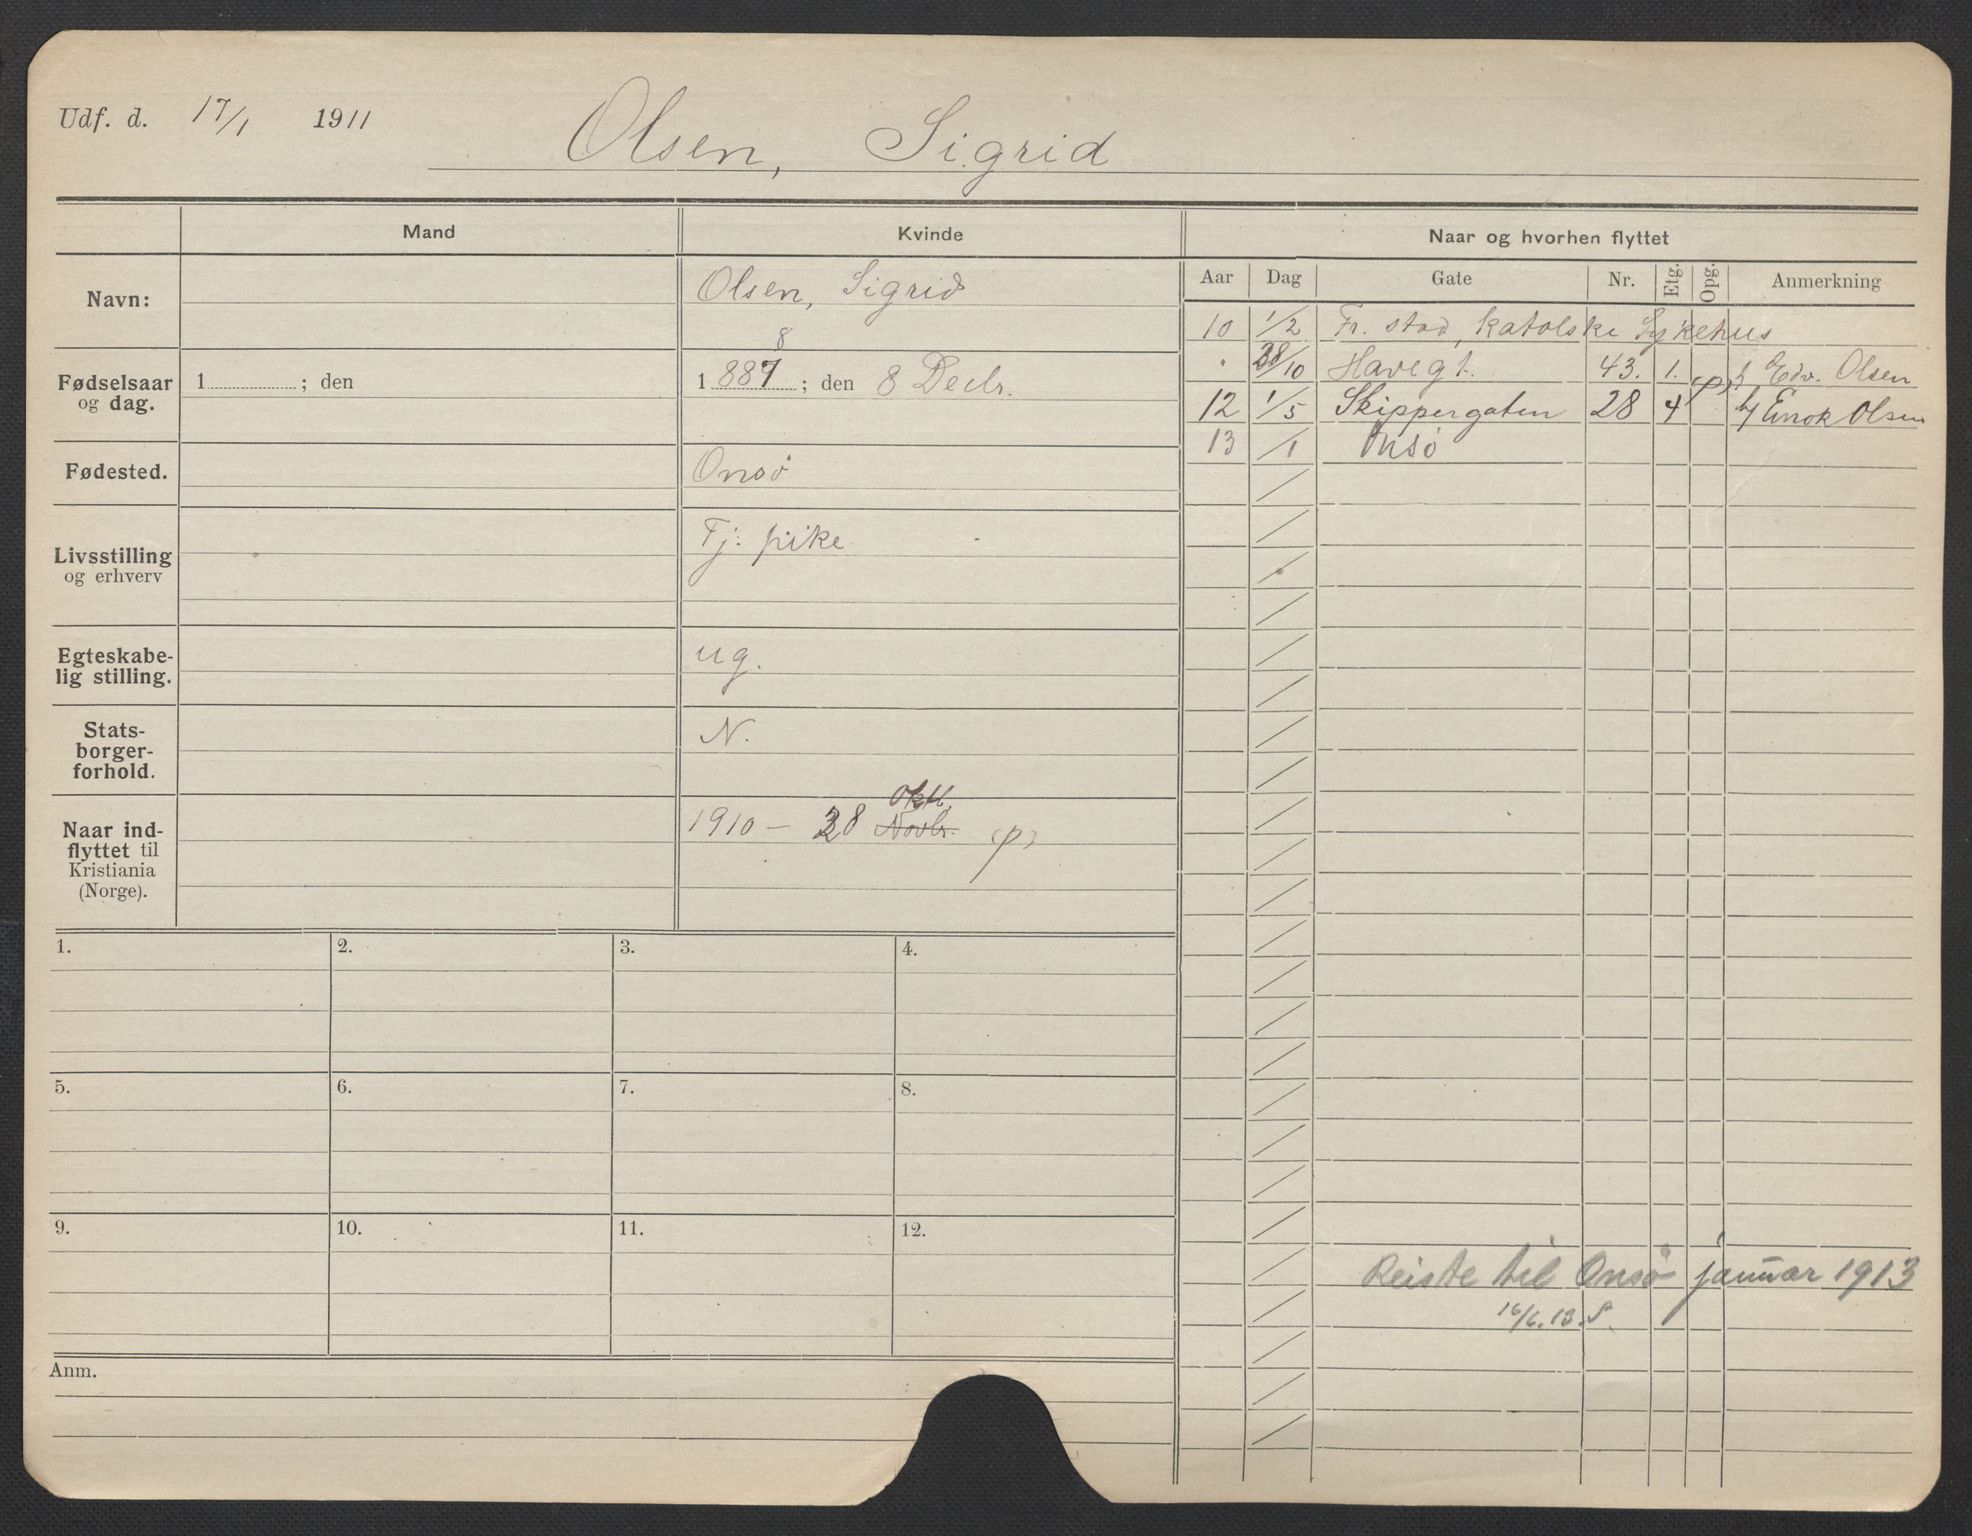 Udf. d. 17/1 1911
Olsen, Sigrid
Mand
Kvinde
Naar og hvorhen flyttet
Navn:
Olsen, Sigrid
Fødselsaar og dag.
1 ; den
8
1 887 ; den 8 Decbr.
Fødested.
Onsö
Livsstilling og erhverv
Tj. pike
Egteskabe-
lig stilling.
ug.
Stats-
borger-
forhold.
N.
Naar ind-
flyttet til
Kristiania
(Norge).
Oktb.
1910 – 28 Novbr. (p)
Aar Dag Gate Nr. Etg. Opg. Anmerkning
10 1/2 Fr. stad, katolske Sykehus
" 28/10 Havegt. 43. 1. (p) Edv. Olsen
12 1/5 Skippergaten 28 4 b/ Enok Olsen
13 /1 Onsö
Reiste til Onsö januar 1913
16/6. 13. S.
1. 2. 3. 4.
5. 6. 7. 8.
9. 10. 11. 12.
Anm.